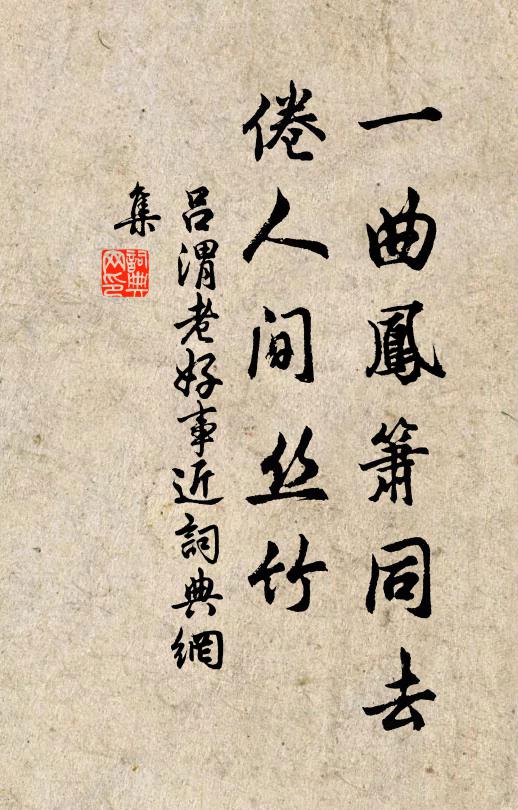 一曲鳳箫同去
倦人间丝竹
吕渭老好事近詞典網
集
詞典
网印